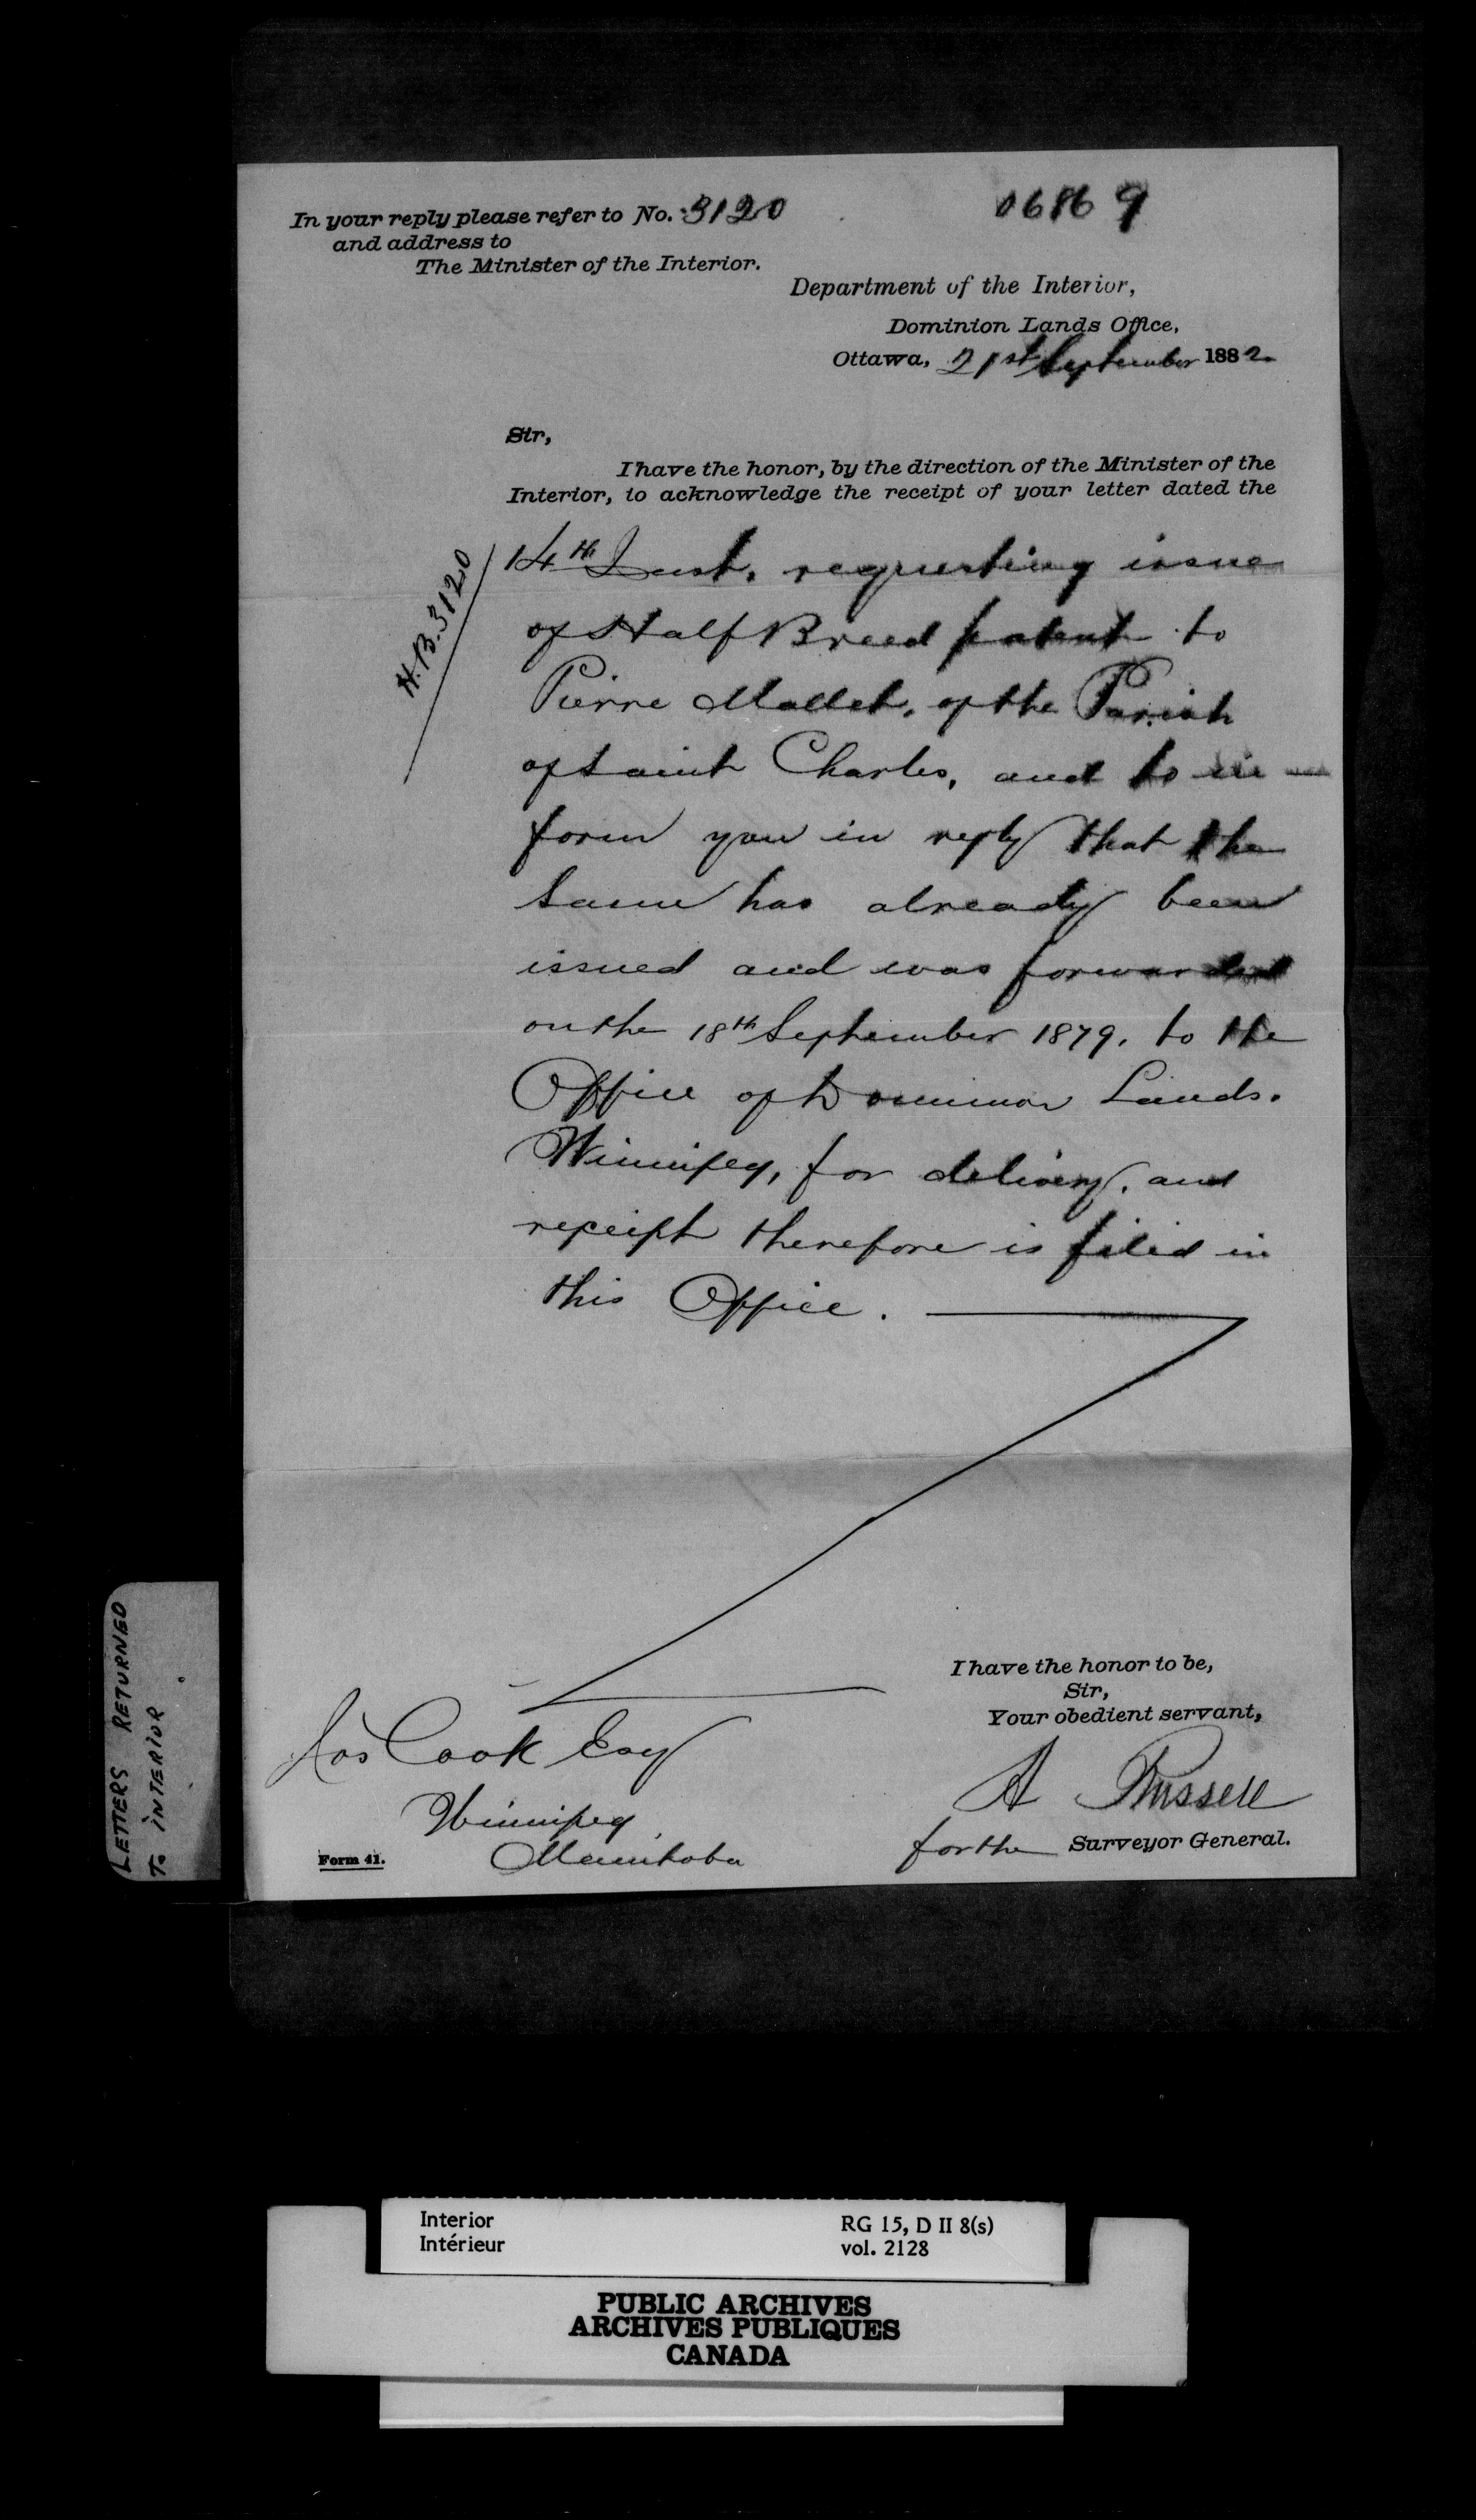 In your reply please refer to No. 3120
and address to
The Minister of the Interior.
06869
Department of the Interior,
Dominion Lands Office,
Ottawa, 21st September 1882
Sir,
I have the honor, by the direction of the Minister of the
Interior, to acknowledge the receipt of your letter dated the
H.B. 3120
14th Inst. requesting issue
of Half Breed patent to
Pierre Mallet, of the Parish
of Saint Charles, and to in
form you in reply that the
same has already been
issued and was forwarded
on the 18th September 1879. to the
Office of Dominion Lands.
Winnipeg, for delivery, and
receipt therefore is filed in
this Office.
I have the honor to be,
Sir,
Your obedient servant,
A Russell
for the Surveyor General.
Jos Cook Esq
Winnipeg
Manitoba
Form 41.
LETTERS RETURNED
To INTERIOR
Interior
Intérieur
RG 15, D II 8(s)
vol. 2128
PUBLIC ARCHIVES
ARCHIVES PUBLIQUES
CANADA